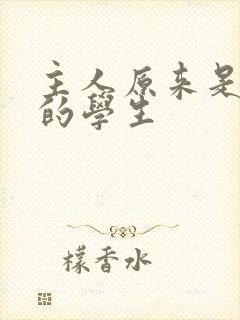 主人原来是
的學生
檬香水